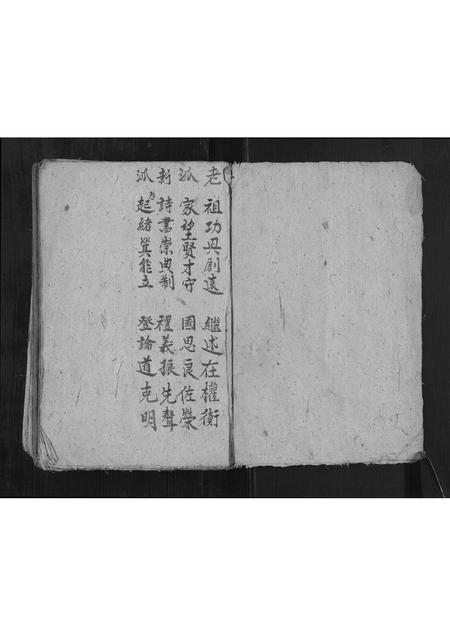 老 祖功與創遠 繼述在權衡
派 家望賢才守 國思良佐榮
新 詩書崇典制 禮義振先聲
派 起緒箕能立 登論道克明